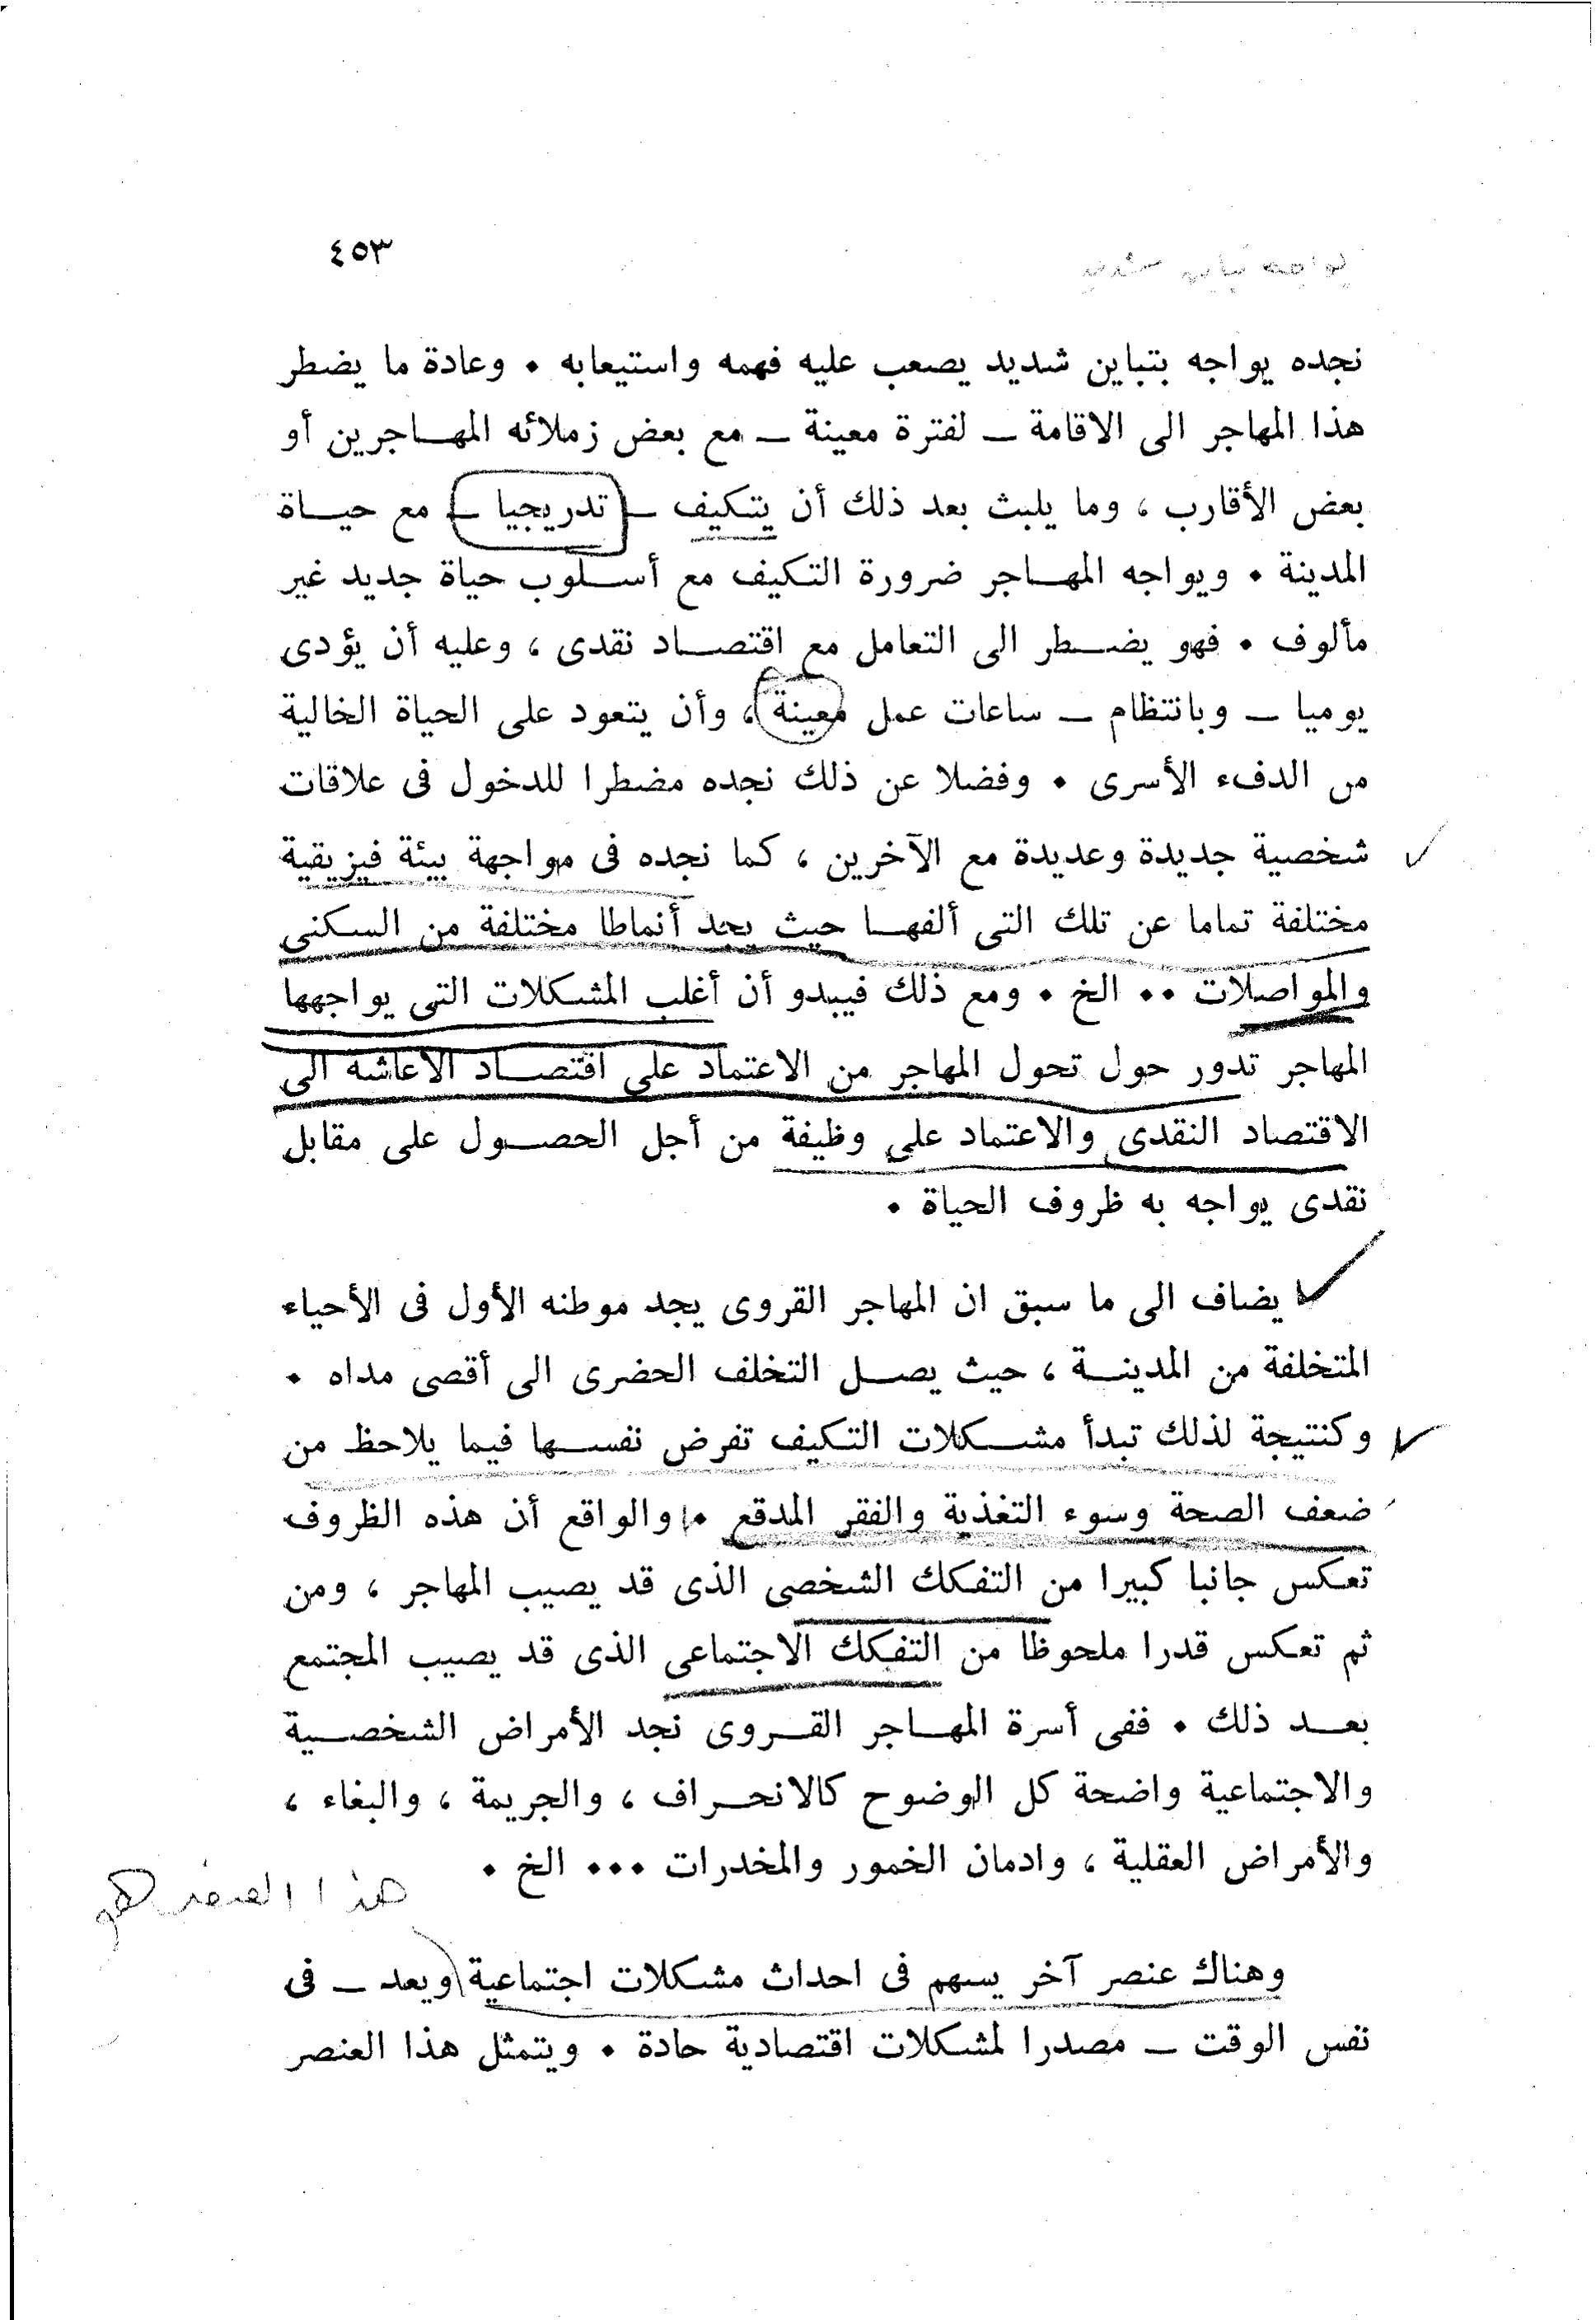 ٤٥٣
نجده يواجه بتباين شديد يصعب عليه فهمه واستيعابه ٠ وعادة ما يضطر
هذا المهاجر الى الاقامة ــ لفترة معينة ــ مع بعض زملائه المهـــاجرين أو
بعض الأقارب ، وما يلبث بعد ذلك أن يتكيف ــ تدريجيا ــ مع حيـــاة
المدينة ٠ ويواجه المهـــاجر ضرورة التكيف مع أســـلوب حياة جديد غير
مألوف ٠ فهو يضـــطر الى التعامل مع اقتصـــاد نقدى ، وعليه أن يؤدى
يوميا ــ وبانتظام ــ ساعات عمل معينة ، وأن يتعود على الحياة الخالية
من الدفء الأسرى ٠ وفضلا عن ذلك نجده مضطرا للدخول فى علاقات
شخصية جديدة وعديدة مع الآخرين ، كما نجده فى مواجهة بيئة فيزيقية
مختلفة تماما عن تلك التى ألفهـــا حيث يجد أنماطا مختلفة من السكنى
والمواصلات ٠٠ الخ ٠ ومع ذلك فيبدو أن أغلب المشكلات التى يواجهها
المهاجر تدور حول تحول المهاجر من الاعتماد على اقتصـــاد الاعاشة الى
الاقتصاد النقدى والاعتماد على وظيفة من أجل الحصـــول على مقابل
نقدى يواجه به ظروف الحياة ٠
يضاف الى ما سبق ان المهاجر القروى يجد موطنه الأول فى الأحياء
المتخلفة من المدينـــة ، حيث يصـــل التخلف الحضرى الى أقصى مداه ٠
وكنتيجة لذلك تبدأ مشـــكلات التكيف تفرض نفســـها فيما يلاحظ من
ضعف الصحة وسوء التغذية والفقر المدقع ٠ والواقع أن هذه الظروف
تعكس جانبا كبيرا من التفكك الشخصى الذى قد يصيب المهاجر ، ومن
ثم تعكس قدرا ملحوظا من التفكك الاجتماعى الذى قد يصيب المجتمع
بعـــد ذلك ٠ ففى أسرة المهـــاجر القـــروى نجد الأمراض الشخصـــية
والاجتماعية واضحة كل الوضوح كالانحـــراف ، والجريمة ، والبغاء ،
والأمراض العقلية ، وادمان الخمور والمخدرات ٠٠٠ الخ ٠
هذا العنصر هو
وهناك عنصر آخر يسهم فى احداث مشكلات اجتماعية ويعد ــ فى
نفس الوقت ــ مصدرا لمشكلات اقتصادية حادة ٠ ويتمثل هذا العنصر